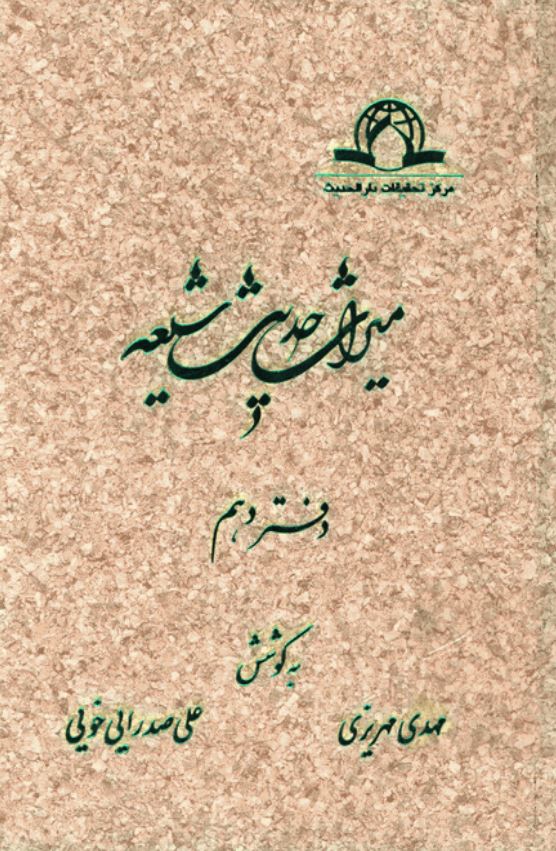 مرکز تحقیقات دارالحدیث
میراث حدیث شیعه
دفتر دهم
به کوشش
مهدی مهریزی
علی صدرایی خویی